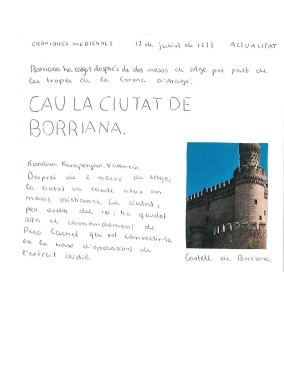 CRÒNIQUES MEDIEVALS 17 de juliol de 1233 ACTUALITAT
Borriana ha caigut després de dos mesos de setge per part de
les tropes de la Corona d'Aragó.
CAU LA CIUTAT DE
BORRIANA.
Karolina Karapetyan, València
Després de 2 mesos de setge,
la ciutat va caure ahir en
mans cristianes. La ciutat,
per ordre del rei, ha quedat
sota el comandament de
Pero Cornel qui vol convertir-la
en la base d'operacions de
l'exèrcit cristià.
Castell de Borriana